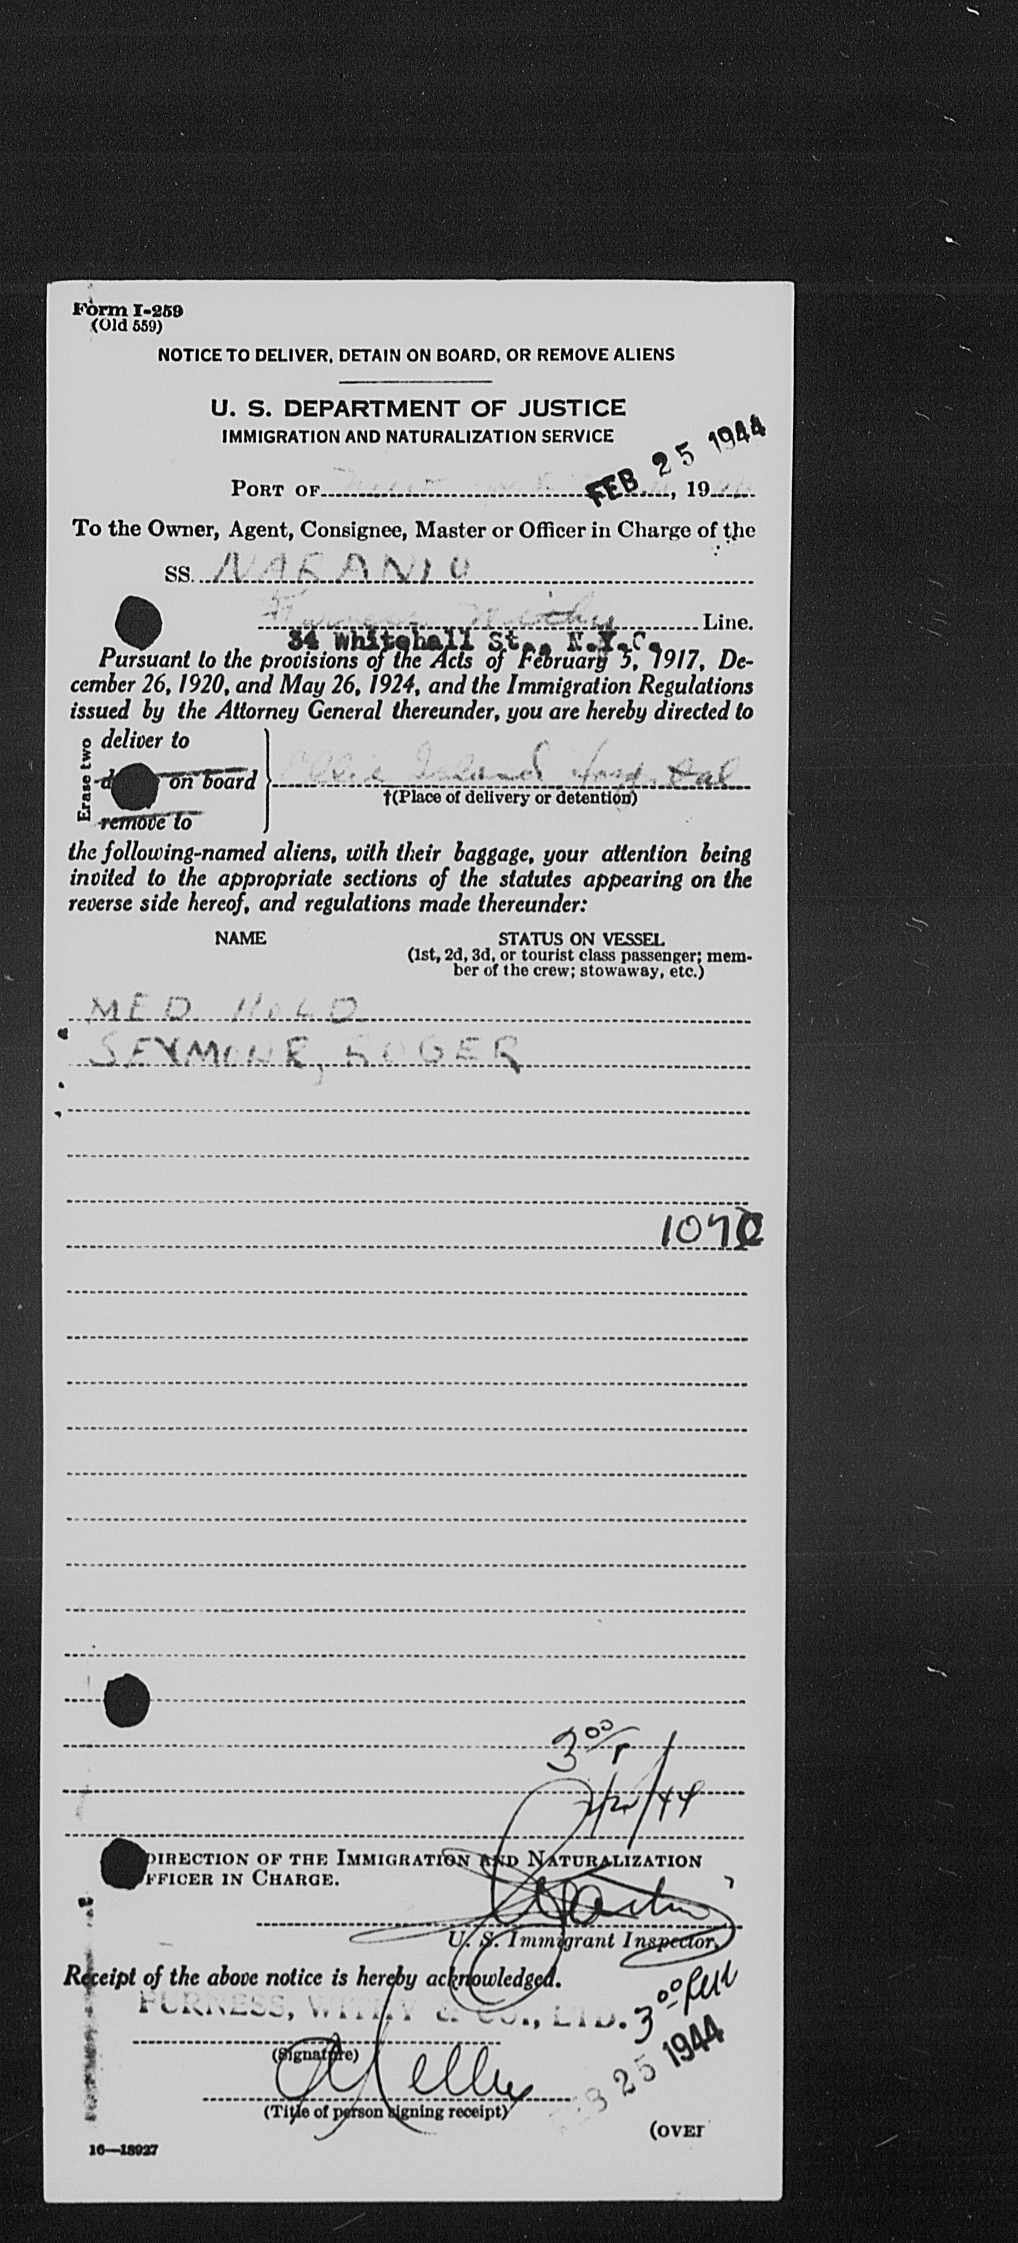 Form I-259
(Old 559)
NOTICE TO DELIVER, DETAIN ON BOARD, OR REMOVE ALIENS
U. S. DEPARTMENT OF JUSTICE
IMMIGRATION AND NATURALIZATION SERVICE
FEB 25 1944
PORT OF , 19
To the Owner, Agent, Consignee, Master or Officer in Charge of the
SS. NARANIO
Furness Withy Line.
34 Whitehall St., N.Y.C.
Pursuant to the provisions of the Acts of February 5, 1917, De-
cember 26, 1920, and May 26, 1924, and the Immigration Regulations
issued by the Attorney General thereunder, you are hereby directed to
Erase two
deliver to
on board Ellis Island Hospital
†(Place of delivery or detention)
remove to
the following-named aliens, with their baggage, your attention being
invited to the appropriate sections of the statutes appearing on the
reverse side hereof, and regulations made thereunder:
NAME STATUS ON VESSEL
(1st, 2d, 3d, or tourist class passenger; mem-
ber of the crew; stowaway, etc.)
MED. HOLD
SEYMOUR, ROGER
3 00 P
DIRECTION OF THE IMMIGRATION AND NATURALIZATION
FFICER IN CHARGE.
U. S. Immigrant Inspector.
Receipt of the above notice is hereby acknowledged.
FURNESS, WITHY & CO., LTD. 3 00 PM
(Signature) FEB 25 1944
Kelly
(Title of person signing receipt)
(OVER
16—18927